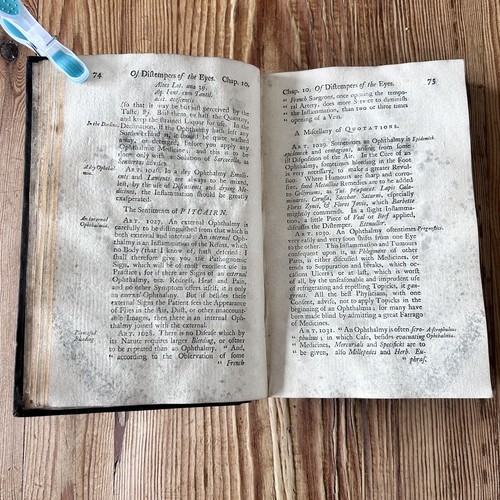 74 Of Distempers of the Eyes. Chap. 10.
Aluis Lot. ana ʒß.
Aq. Font. cum Tantill.
acet. acescentis
(so that it may be but just perceived by the
Taste.) By. Boil them to half the Quantity,
and keep the strained Liquor for Use. In the
In the Declin.
Declination, if the Ophthalmy hath
it should be quite washed
away, or deterged, before you apply any
Ophthalmic Medicine; and this is to be
done only with a Solution of Sarcocolla, in
Succory Water.
A dry Ophthalmia.
ART. 1026. In a dry Ophthalmy, Emollients
and Lenients are always to be mixed,
lest, by the use of Disutients and drying Medicines,
the Inflammation should be greatly
exasperated.
The Sentiments of PITCAIRN.
An internal Ophthalmia.
ART. 1027. An external Ophthalmy is
carefully to be distinguished from that which is
both external and internal: An internal Ophthalmy
is an Inflammation of the Retina, which
no Body (that I know of) hath defined: I
shall therefore give you the Pathognomic
Signs, which will be of most excellent use in
Practice; for if there are Signs of an external
Ophthalmy, viz. Redness, Heat and Pain,
and no other Symptom offers itself, it is only
an external Ophthalmy. But if besides these
external Signs the Patient sees the Appearance
of Flies in the Air, Dust, or other unaccountable
Images, then there is an internal Ophthalmy
joined with the external.
Bleeding
ART. 1028. There is no Disease which by
its Nature requires larger Bleeding, or oftner
to be repeated than an Ophthalmy, "And,
" according to the Observation of some
" French
Chap. 10. Of Distempers of the Eyes. 75
" French Surgeons, once opening the temporal
" Artery, does more Service to diminish
" the Inflammation, than two or three times
" opening of a Vein.
A Miscellany of QUOTATIONS.
ART. 1029. Sometimes an Ophthalmy is Epidemick
epidemick and contagious, arising from some
ill Disposition of the Air. In the Cure of an
Ophthalmy, sometimes bleeding in the Foot
is very necessary, to make a greater Revulsion.
Where Humours are sharp and corrosive,
fixed Metalline Remedies are to be added
to Collyriums, as Tut. præparat. Lapis Calaminaris,
Cerussa, Sacchar. Saturni, especially
Flores Zinci, & Flores Jovis, which Barbette
mightily commends. In a slight Inflammation,
a little Piece of Veal or Beef applied,
discusses the Distemper. Etmuller.
ART. 1030. An Ophthalmy oftentimes Prognostics.
very easily and very soon shifts from one Eye
to the other. This Inflammation and Tumours
consequent upon it, as Phlegmons of other
Parts, is either discussed with Medicines, or
tends to Suppuration and breaks, which occasions
Ulcers; or at last, which is worst
of all, by the unseasonable and imprudent use
of refrigerating and repelling Topicks, it gangrenes.
All the best Physicians, with one
Consent, advise, not to apply Topicks in the
beginning of an Ophthalmia; for many have
been made blind by admitting a great Farrago
of Medicines.
ART. 1031. " An Ophthalmy is often scro- A scrophulous Ophthalmia.
" phulous; in which Case, besides evacuating
" Medicines, Mercurials and Specificks are to
" be given, also Millepedes and Herb. Eu-
" phras.